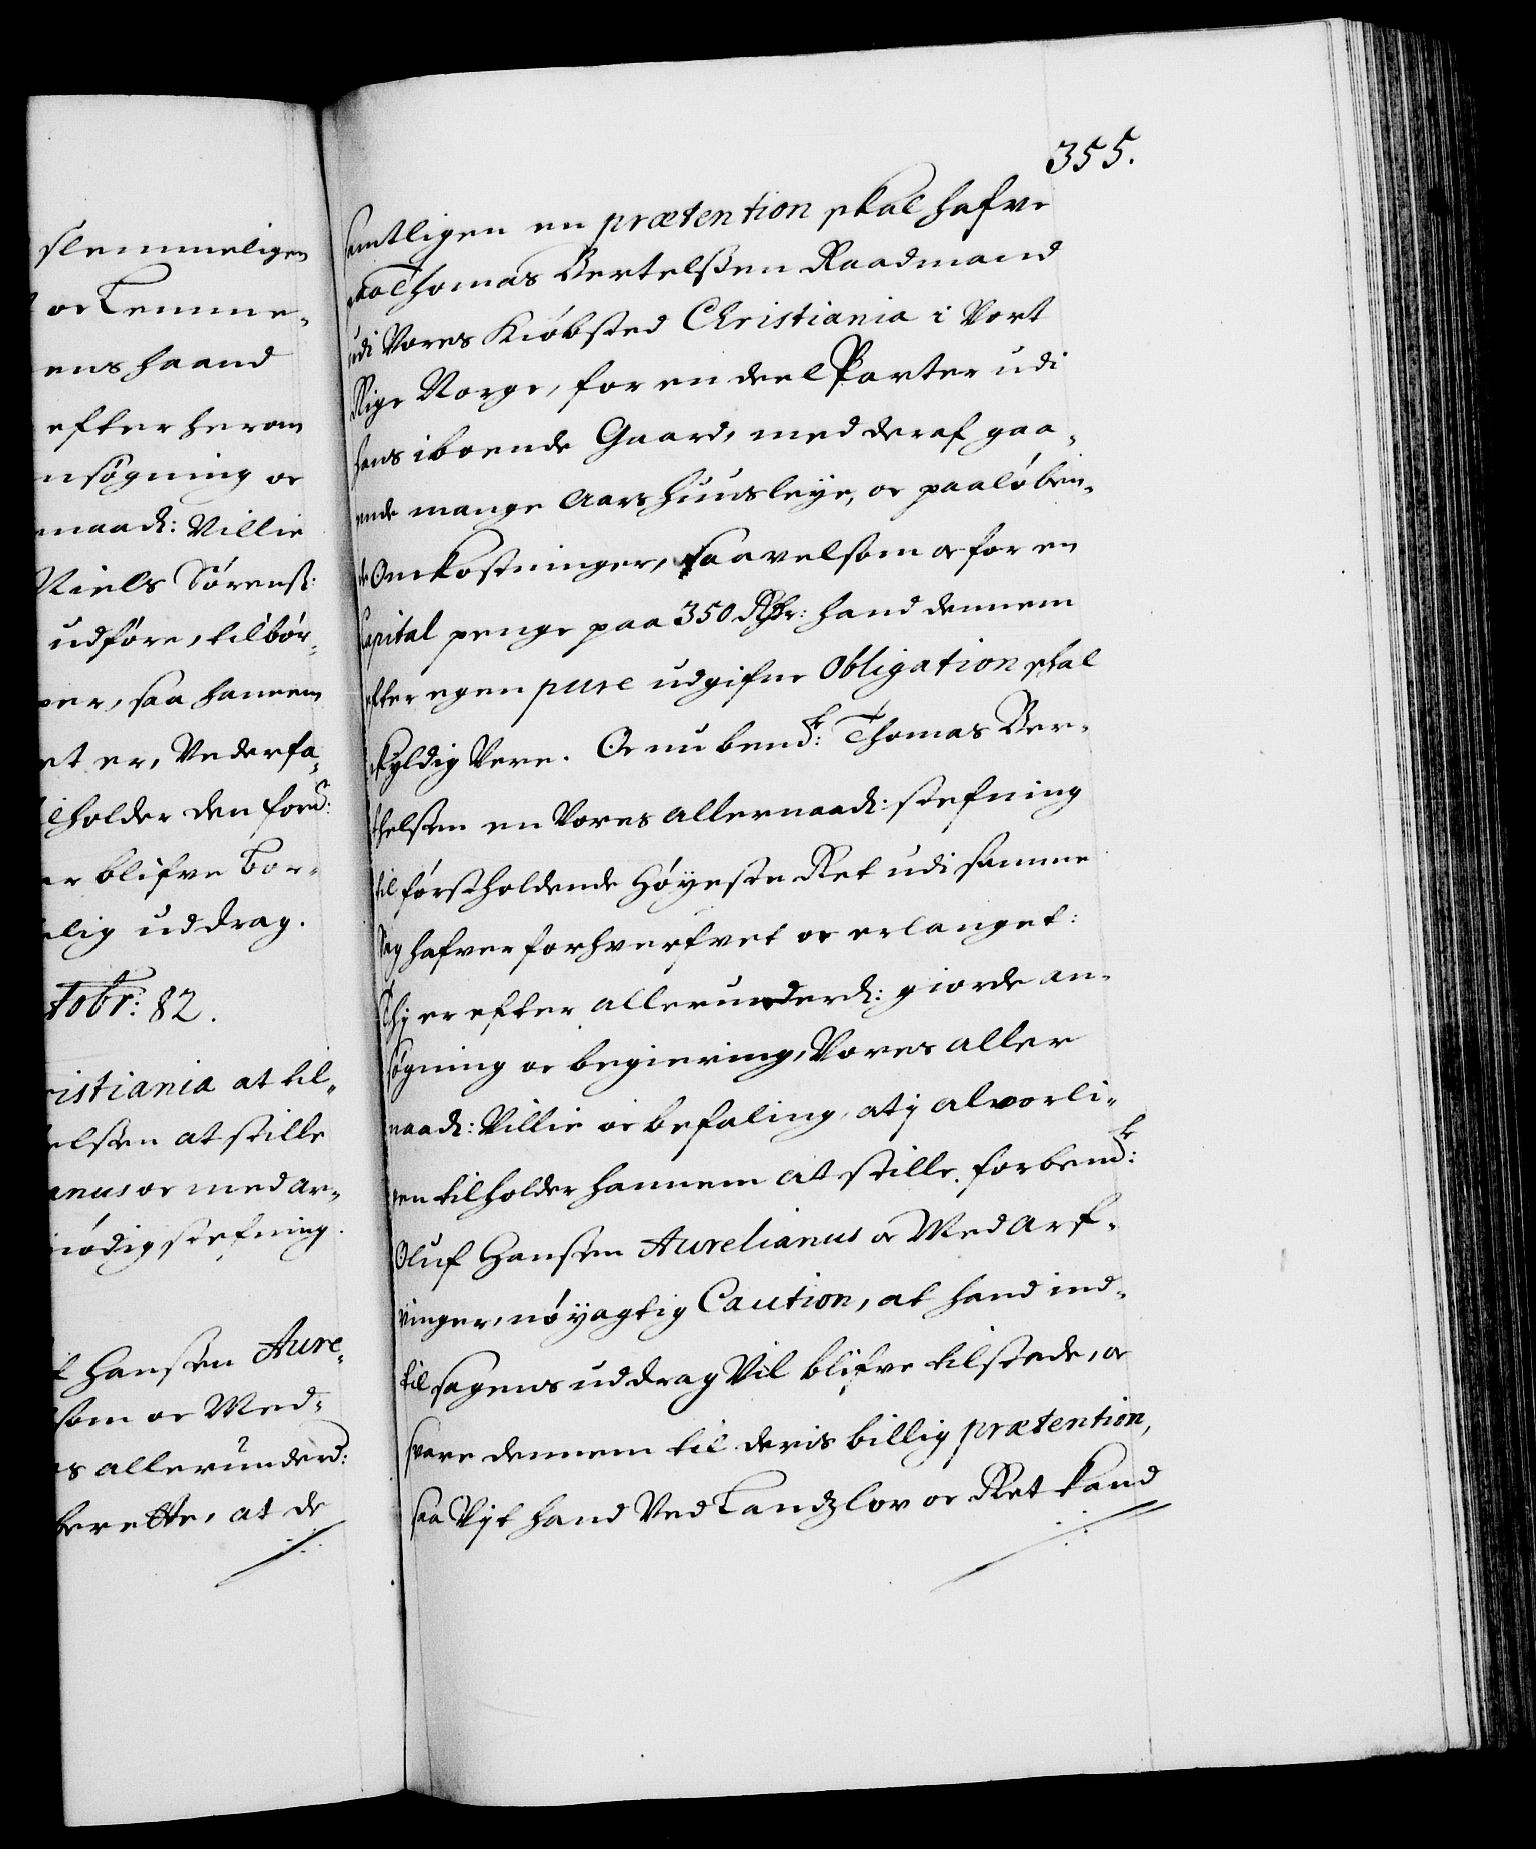 slemmeligen
oc komme¬
ens haand
efter heram
nsøgning oc
naad: Villie
Niels Sørens:
udføre, tilbør¬
ver, saa hannem
et er, Vederfa¬
lholder den forn:
er blifve bor¬
elig uddrag.
tobr: 82.
ristiania at til¬
elsen at stille
anus oc med ar¬
nødig stefning.
Hansen Aure¬
som oc Med¬
os allerunderd:
berette, at de
355.
samtligen en prætention skal hafve
paa Thomas Bertelssen Raadmand
udi Vores Kiøbsted Christiania i Vort
Rige Norge, for en deel Parter udi
hans iboende Gaard, med deraf gaa¬
ende mange Aars huusleye, oc paaløben¬
de Omkostninger, saavelsom oc for en
Capital penge paa 350 Rdr: hand dennem
efter egen pure udgifne Obligation skal
skyldig Vere. Oc nu bemd: Thomas Ber¬
thelsen en Vores allernaad: stefning
til først holdende Høyeste Ret udi samme
Sag hafver forhverfvet oc erlanget:
Thj er efter allerunderd: giorde an¬
søgning oc begiering, Vores aller
naad: Villie oc befaling, at j alvorli¬
gen tilholder hannem at stille forbemd:
Oluf Hansen Aurelianus oc Med Arf¬
vinger, nøyagtig Caution, at hand ind¬
til sagens uddrag Vil blifve tilstede, oc
svare dennem til deris billig prætention,
saa Vjt hand Ved Landzlov oc Ret kand